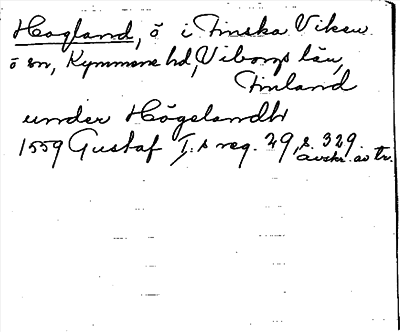 Hogland, ö i Finska Viken.
ö sn, Kymmene hd, Viborgs län,
Finland
under Högelandh
1559 Gustaf I:s reg. 29, s. 329.
avskr. av tr.